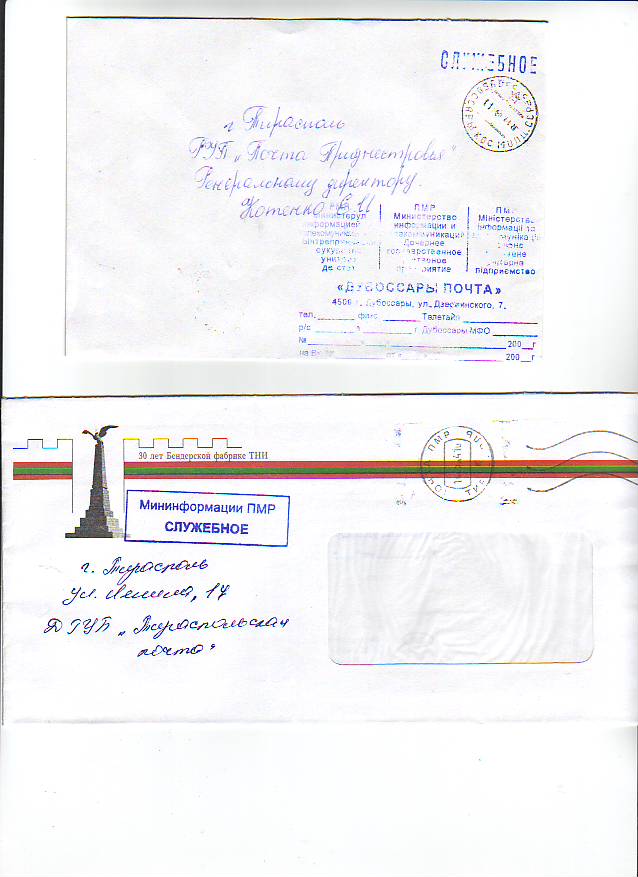 СЛУЖЕБНОЕ
г Тирасполь
РУП „Почта Приднестровья"
Генеральному директору.
Котенко С И
информацией
унитар
де стат
ПМР
Министерство
информации и
телекоммуникаций
Дочернее
государственное
унитарное
предприятие
ПМР
Міністерство
інформації та
підприємство
«ДУБОССАРЫ ПОЧТА»
4500 г. Дубоссары, ул. Дзержинского, 7.
тел. факс Телетайп
р/с в г. Дубоссары МФО
№ 200 г
на Вх. № от 200 г
30 лет Бендерской фабрике ТНИ
ПМР
Мининформации ПМР
СЛУЖЕБНОЕ
г. Тирасполь
ул. Ленина, 17
ДГУП „Тираспольская
почта"